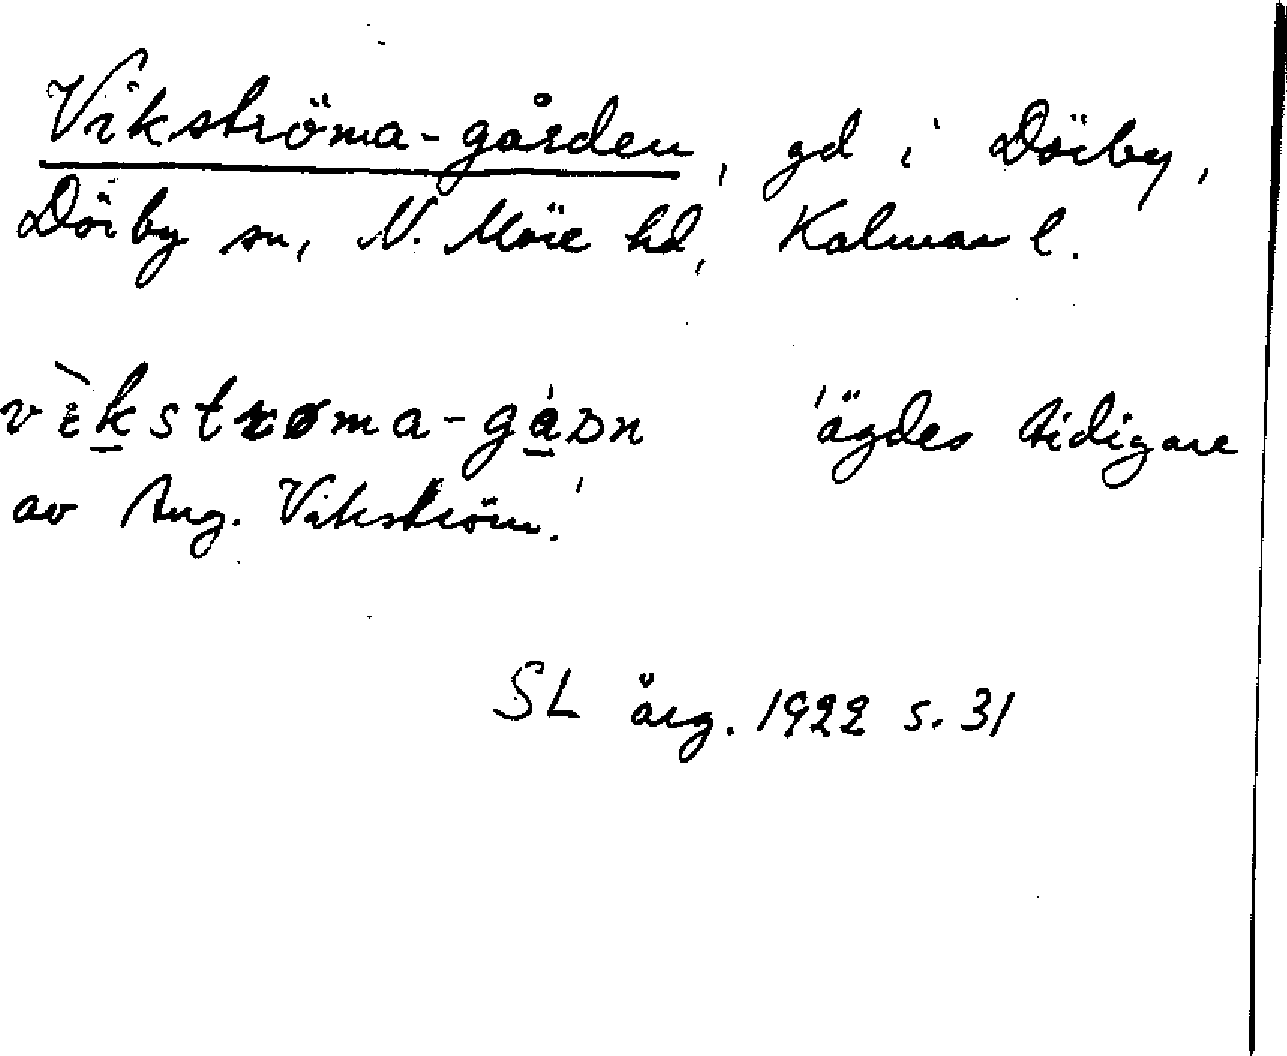 Vikströma-gården, gd i Dörby,
Dörby sn, N. Möre hd, Kalmar l.
vìkstrøma-gádn 'ägdes tidigare
av Aug. Vikström.'
SL årg. 1922 s. 31